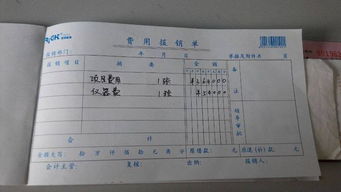 费用报销单
报销部门： 年 月 日 单据及附件共 页
报销项目 摘要 金额 备注
项目费用 1张
仪器费 1张 ¥ 5 4 0 0 0 0
领导审批
合计
金额大写： 拾 万 仟 佰 拾 元 角 分 原借款： 元 应退（补）款： 元
会计主管： 复核： 出纳： 报销人：